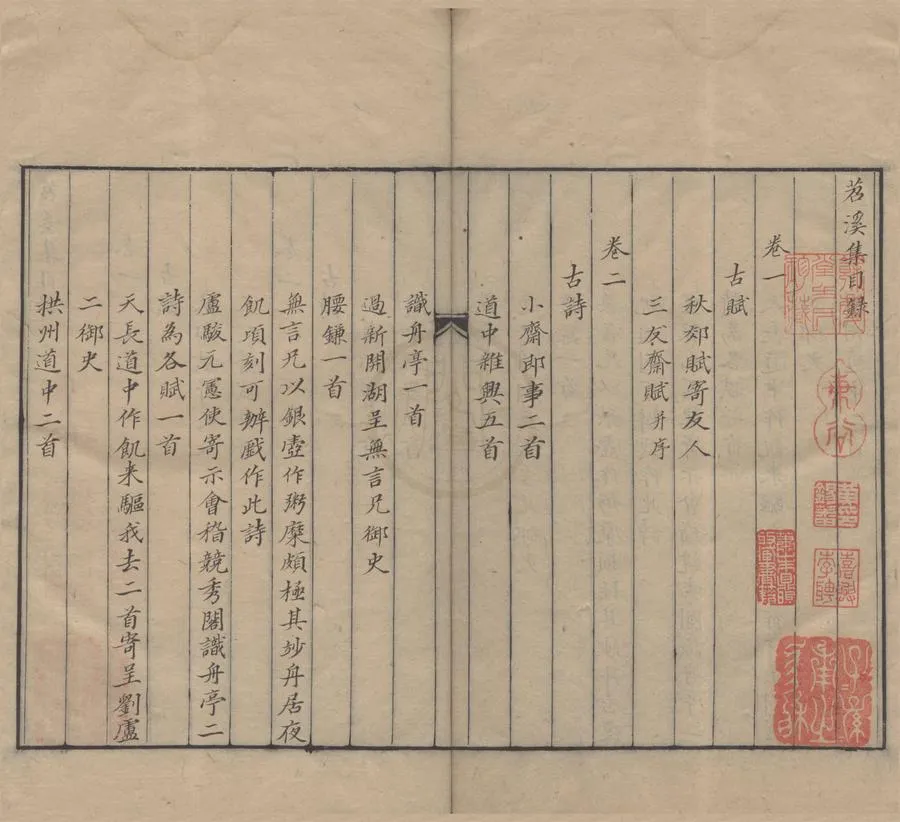 苕溪集目録
卷一
古賦
秋郊賦寄友人
三友齋賦并序
卷二
古詩
小齋即事二首
道中雜興五首
識舟亭一首
過新開湖呈無言兄御史
腰鎌一首
無言兄以銀壺作粥糜頗極其妙舟居夜
飢項刻可辦戲作此詩
盧駿元憲使寄示會稽競秀閣識舟亭二
詩為各賦一首
天長道中作飢来驅我去二首寄呈劉盧
二御史
拱州道中二首
嘉興
李聘